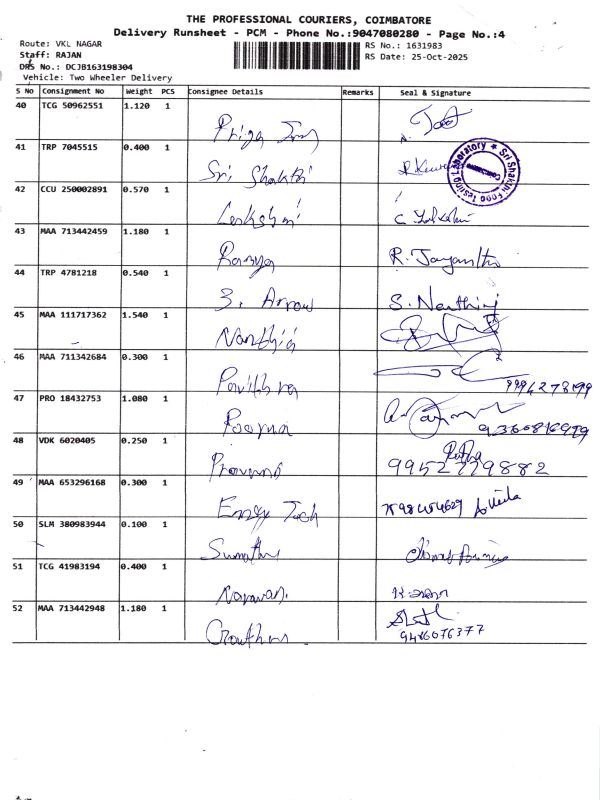 THE PROFESSIONAL COURIERS, COIMBATORE
Delivery Runsheet - PCM - Phone No.:9047080280 - Page No.:4
Route: VKL NAGAR
RS No.: 1631983
Staff: RAJAN
RS Date: 25-Oct-2025
DRS No.: DCJB163198304
Vehicle: Two Wheeler Delivery
S No Consignment No Weight PCS Consignee Details Remarks Seal & Signature
40 TCG 50962551 1.120 1
Priya
41 TRP 7045515 0.400 1
Sri Shakthi
Sri Shakthi Food Testing Laboratory
42 CCU 250002891 0.570 1
Lakshmi
43 MAA 713442459 1.180 1
Ramya R. Jayanthi
44 TRP 4781218 0.540 1
3. Arrow S. Nanthini
45 MAA 111717362 1.540 1
Nanthini
46 MAA 711342684 0.300 1
Pavithra
47 PRO 18432753 1.080 1
Poorna
48 VDK 6020405 0.250 1
9952779882
49 MAA 653296168 0.300 1
Tech
50 SLM 380983944 0.100 1
51 TCG 41983194 0.400 1
52 MAA 713442948 1.180 1